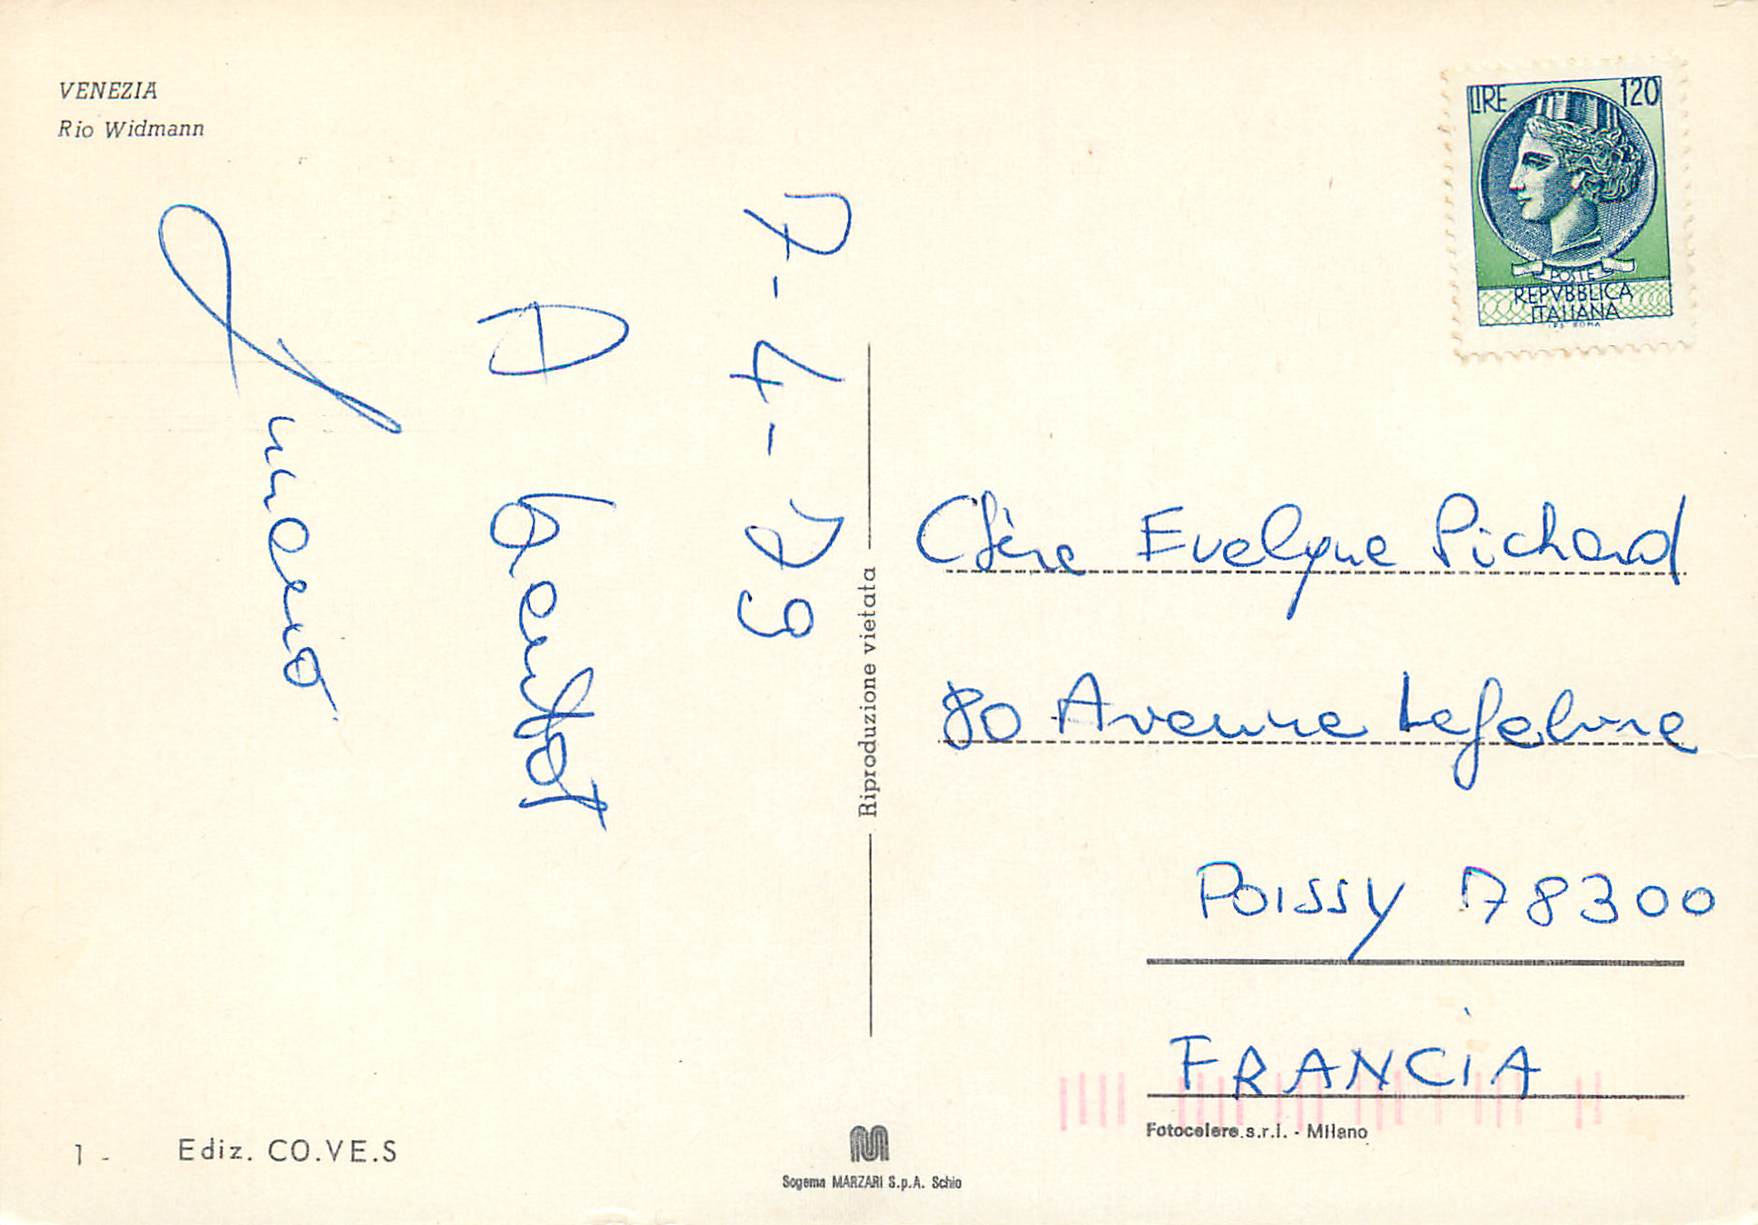 VENEZIA
Rio Widmann
7-4-79
A bientôt
LIRE 120
POSTE
REPVBBLICA
ITALIANA
I.P.S. ROMA
Chère Evelyne Pichard
80 Avenue Lefebvre
POISSY 78300
FRANCIA
Riproduzione vietata
1 - Ediz. CO.VE.S
Fotocelere s.r.l. - Milano
M
Sogema MARZARI S.p.A. Schio